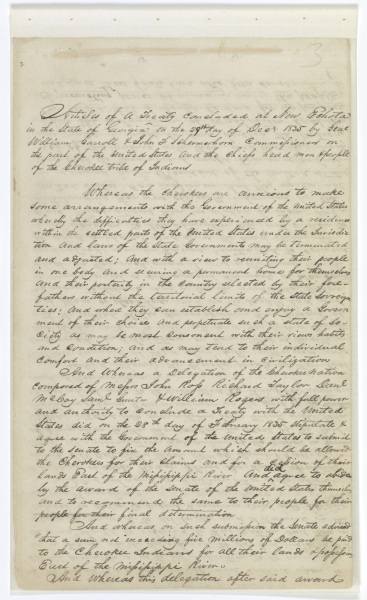 Articles of a Treaty concluded at New Echota
in the State of Georgia on the 29th day of Decr 1835 by Genl
William Carroll & John F Schermerhorn Commissioners on
the part of the United States and the Chiefs head men & people
of the Cherokee tribe of Indians
Whereas the Cherokees are anxious to make
some arrangements with the Government of the United States
whereby the difficulties they have experienced by a residence
within the settled parts of the United States under the Jurisdic
tion and laws of the State Governments may be terminated
and adjusted; and with a view to reuniting their people
in one body and securing a permanent home for themselves
and their posterity in the Country selected by their fore
fathers without the territorial limits of the State Sovereign
ties; and where they can establish and enjoy a Govern
ment of their choice and perpetuate such a state of So
ciety as may be most consonant with their views habits
and Condition; and as may tend to their individual
Comfort and their advancement in Civilization
And Whereas a Delegation of the Cherokee Nation
composed of Messrs John Ross Richard Taylor Danl
McCoy Saml Gunter & William Rogers with full power
and authority to conclude a Treaty with the United
States did on the 28th day of February 1835 stipulate &
agree with the Government of the United States to submit
to the Senate to fix the amount which should be allowed
the Cherokees for their Claims and for a Cession of their
lands East of the Mississippi River And did agree to abide
by the award of the Senate of the United States themselves
and to recommend the same to their people for their
people for their final determination
And whereas on such submission the Senate advised
"that a sum not exceeding five millions of Dollars be paid
to the Cherokee Indians for all their lands & possessions
East of the Mississippi River"
And Whereas this delegation after said award